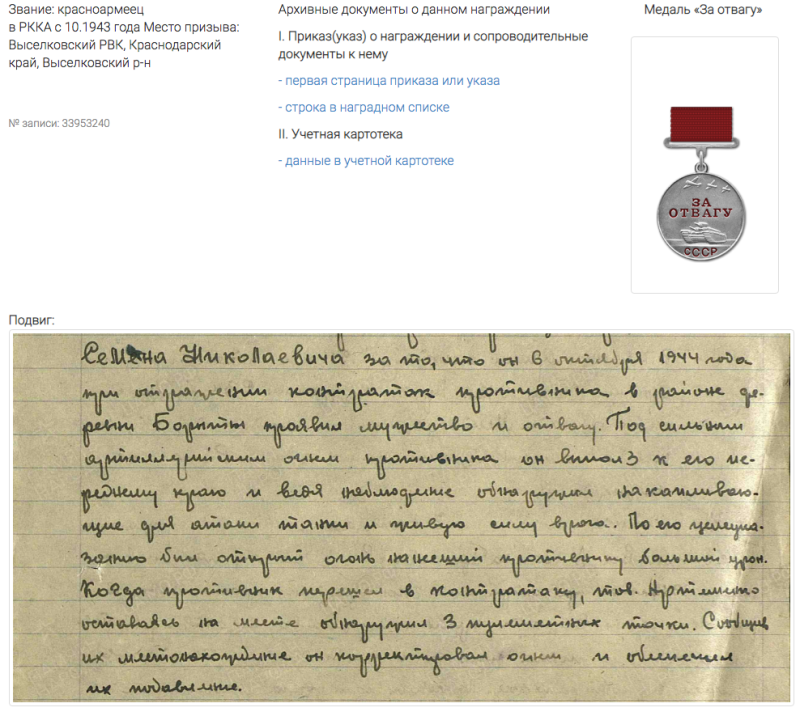 Звание: красноармеец
в РККА с 10.1943 года Место призыва:
Выселковский РВК, Краснодарский
край, Выселковский р-н
№ записи: 33953240
Архивные документы о данном награждении
I. Приказ(указ) о награждении и сопроводительные
документы к нему
- первая страница приказа или указа
- строка в наградном списке
II. Учетная картотека
- данные в учетной картотеке
Медаль «За отвагу»
ЗА
ОТВАГУ
СССР
Подвиг:
Семена Николаевича за то, что он 6 октября 1944 года
при отражении контратак противника в районе де-
ревни проявил мужество и отвагу. Под сильным
артиллерийским огнем противника он выполз к его пе-
реднему краю и ведя наблюдение обнаружил накапливаю-
щие для атаки танки и живую силу врага. По его целеука-
занию был открыт огонь нанесший противнику большой урон.
Когда противник перешел в контратаку, тов. Артеменко
оставаясь на месте обнаружил 3 пулеметных точки. Сообщив
их местонахождение он корректировал огнем и обеспечил
их подавление.